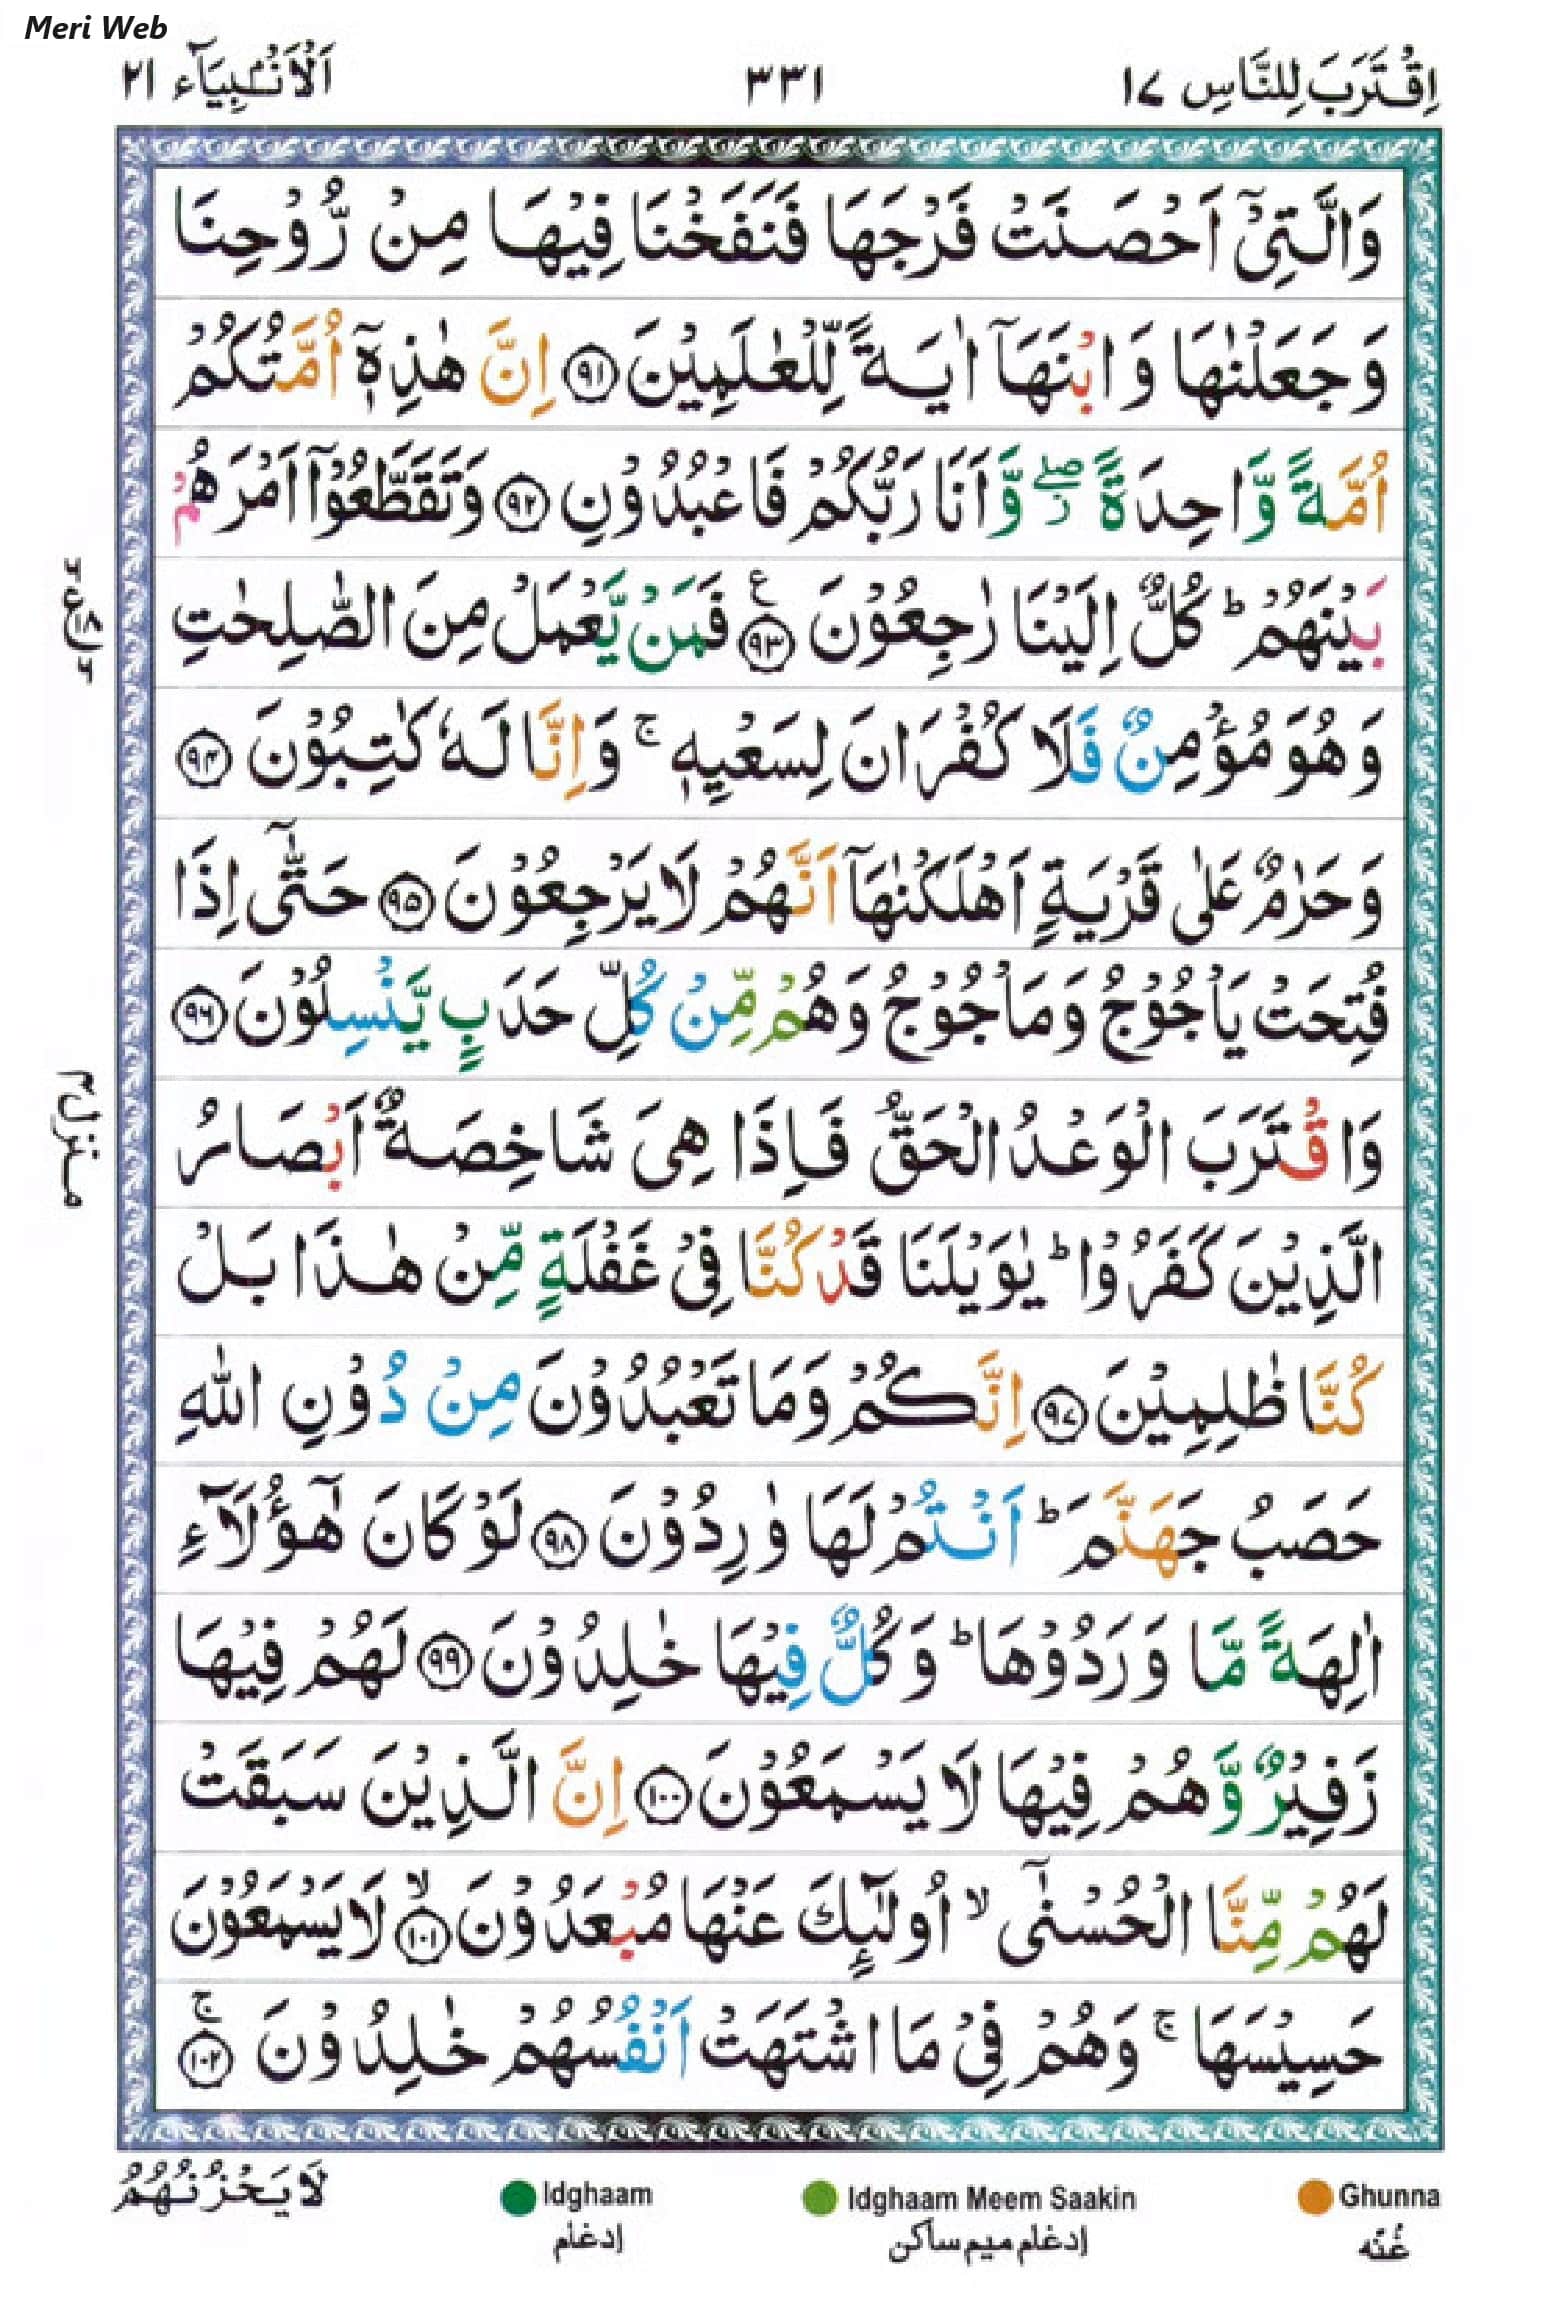 Meri Web
اِقْتَرَبَ لِلنَّاسِ ١٧
٣٣١
اَلْاَنْۢبِيَآء ٢١
وَالَّتِىْۤ اَحْصَنَتْ فَرْجَهَا فَنَفَخْنَا فِيْهَا مِنْ رُّوْحِنَا
وَجَعَلْنٰهَا وَابْنَهَاۤ اٰيَةً لِّلْعٰلَمِيْنَ ﴿٩١﴾ اِنَّ هٰذِهٖۤ اُمَّتُكُمْ
اُمَّةً وَّاحِدَةً ۖ وَّاَنَا رَبُّكُمْ فَاعْبُدُوْنِ ﴿٩٢﴾ وَتَقَطَّعُوْۤا اَمْرَهُمْ
بَيْنَهُمْ ؕ كُلٌّ اِلَيْنَا رٰجِعُوْنَ ﴿٩٣﴾ ع فَمَنْ يَّعْمَلْ مِنَ الصّٰلِحٰتِ
وَهُوَ مُؤْمِنٌ فَلَا كُفْرَانَ لِسَعْيِهٖ ۚ وَاِنَّا لَهٗ كٰتِبُوْنَ ﴿٩٤﴾
وَحَرٰمٌ عَلٰى قَرْيَةٍ اَهْلَكْنٰهَاۤ اَنَّهُمْ لَا يَرْجِعُوْنَ ﴿٩٥﴾ حَتّٰۤى اِذَا
فُتِحَتْ يَاْجُوْجُ وَمَاْجُوْجُ وَهُمْ مِّنْ كُلِّ حَدَبٍ يَّنْسِلُوْنَ ﴿٩٦﴾
وَاقْتَرَبَ الْوَعْدُ الْحَقُّ فَاِذَا هِىَ شَاخِصَةٌ اَبْصَارُ
الَّذِيْنَ كَفَرُوْا ؕ يٰوَيْلَنَا قَدْ كُنَّا فِىْ غَفْلَةٍ مِّنْ هٰذَا بَلْ
كُنَّا ظٰلِمِيْنَ ﴿٩٧﴾ اِنَّكُمْ وَمَا تَعْبُدُوْنَ مِنْ دُوْنِ اللّٰهِ
حَصَبُ جَهَنَّمَ ؕ اَنْتُمْ لَهَا وٰرِدُوْنَ ﴿٩٨﴾ لَوْ كَانَ هٰٓؤُلَآءِ
اٰلِهَةً مَّا وَرَدُوْهَا ؕ وَكُلٌّ فِيْهَا خٰلِدُوْنَ ﴿٩٩﴾ لَهُمْ فِيْهَا
زَفِيْرٌ وَّهُمْ فِيْهَا لَا يَسْمَعُوْنَ ﴿١٠٠﴾ اِنَّ الَّذِيْنَ سَبَقَتْ
لَهُمْ مِّنَّا الْحُسْنٰٓى ۙ اُولٰٓئِكَ عَنْهَا مُبْعَدُوْنَ ﴿١٠١﴾ ۙ لَا يَسْمَعُوْنَ
حَسِيْسَهَا ۚ وَهُمْ فِىْ مَا اشْتَهَتْ اَنْفُسُهُمْ خٰلِدُوْنَ ﴿١٠٢﴾ ۚ
منزل ٤
لَا يَحْزُنُهُمُ
Idghaam
ادغام
Idghaam Meem Saakin
ادغام میم ساکن
Ghunna
غنّه